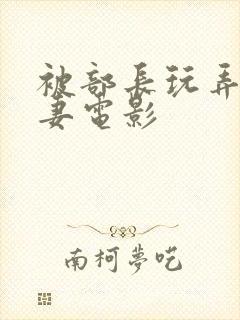 被部長玩弄
妻電影
南柯夢呓